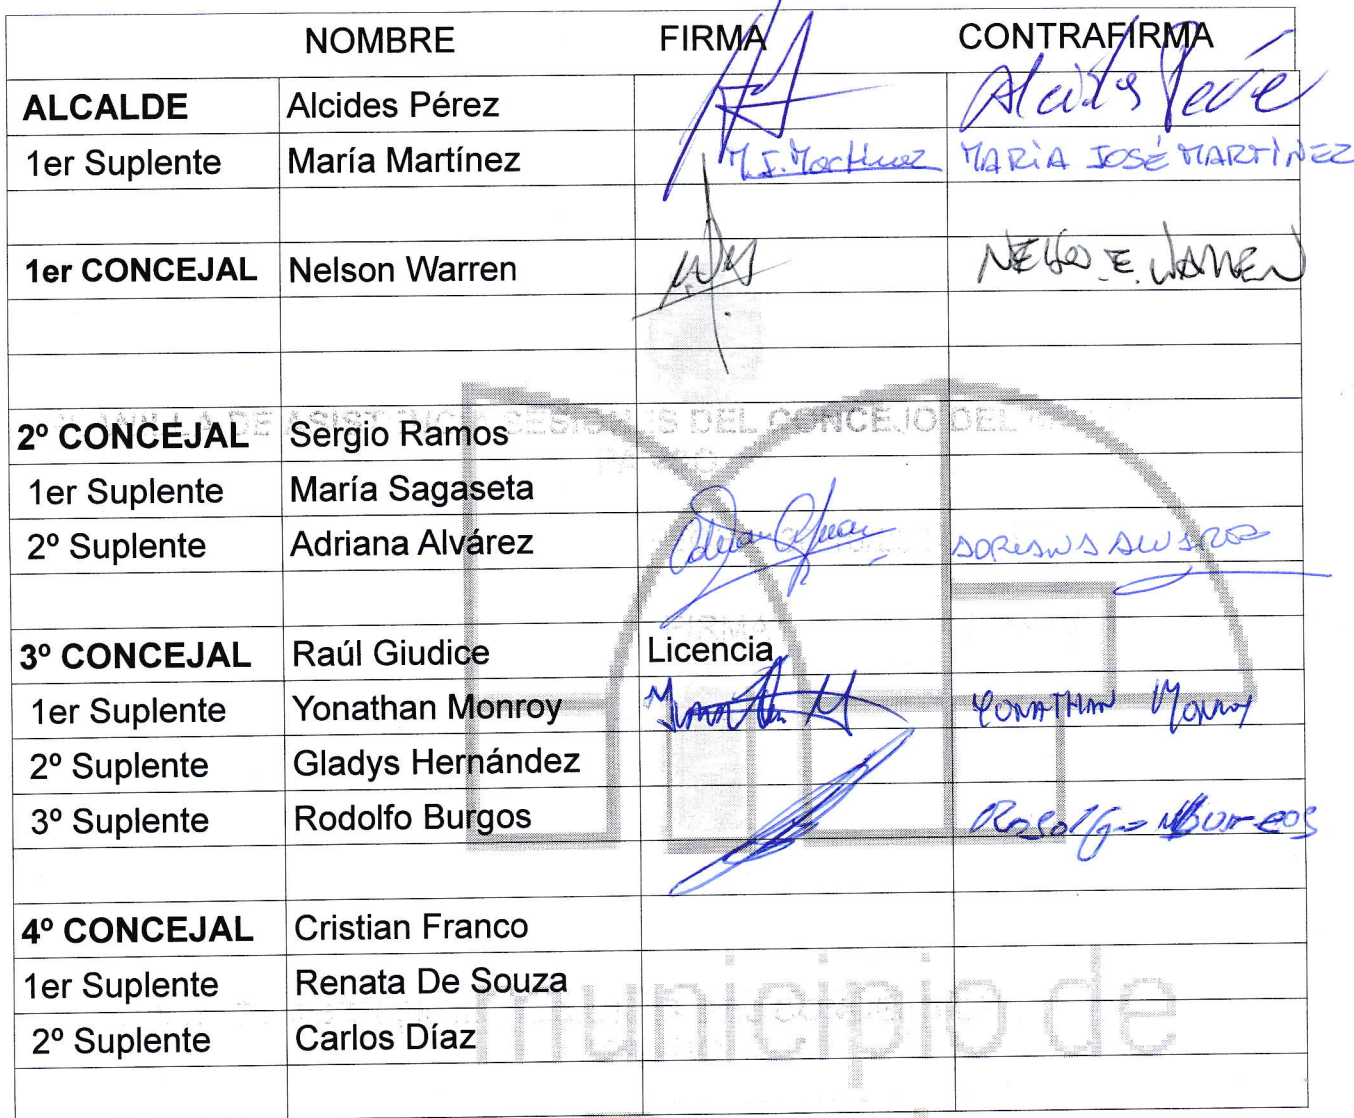 NOMBRE FIRMA CONTRAFIRMA
ALCALDE Alcides Pérez Alcides Pérez
1er Suplente María Martínez M.J. Martínez MARÍA JOSÉ MARTÍNEZ
1er CONCEJAL Nelson Warren NELSON E. WARREN
2º CONCEJAL Sergio Ramos
1er Suplente María Sagaseta
2º Suplente Adriana Alvárez Adriana Alvarez ADRIANA ALVAREZ
3º CONCEJAL Raúl Giudice Licencia
1er Suplente Yonathan Monroy YONATHAN Monroy
2º Suplente Gladys Hernández
3º Suplente Rodolfo Burgos Rodolfo Burgos
4º CONCEJAL Cristian Franco
1er Suplente Renata De Souza
2º Suplente Carlos Díaz
municipio de